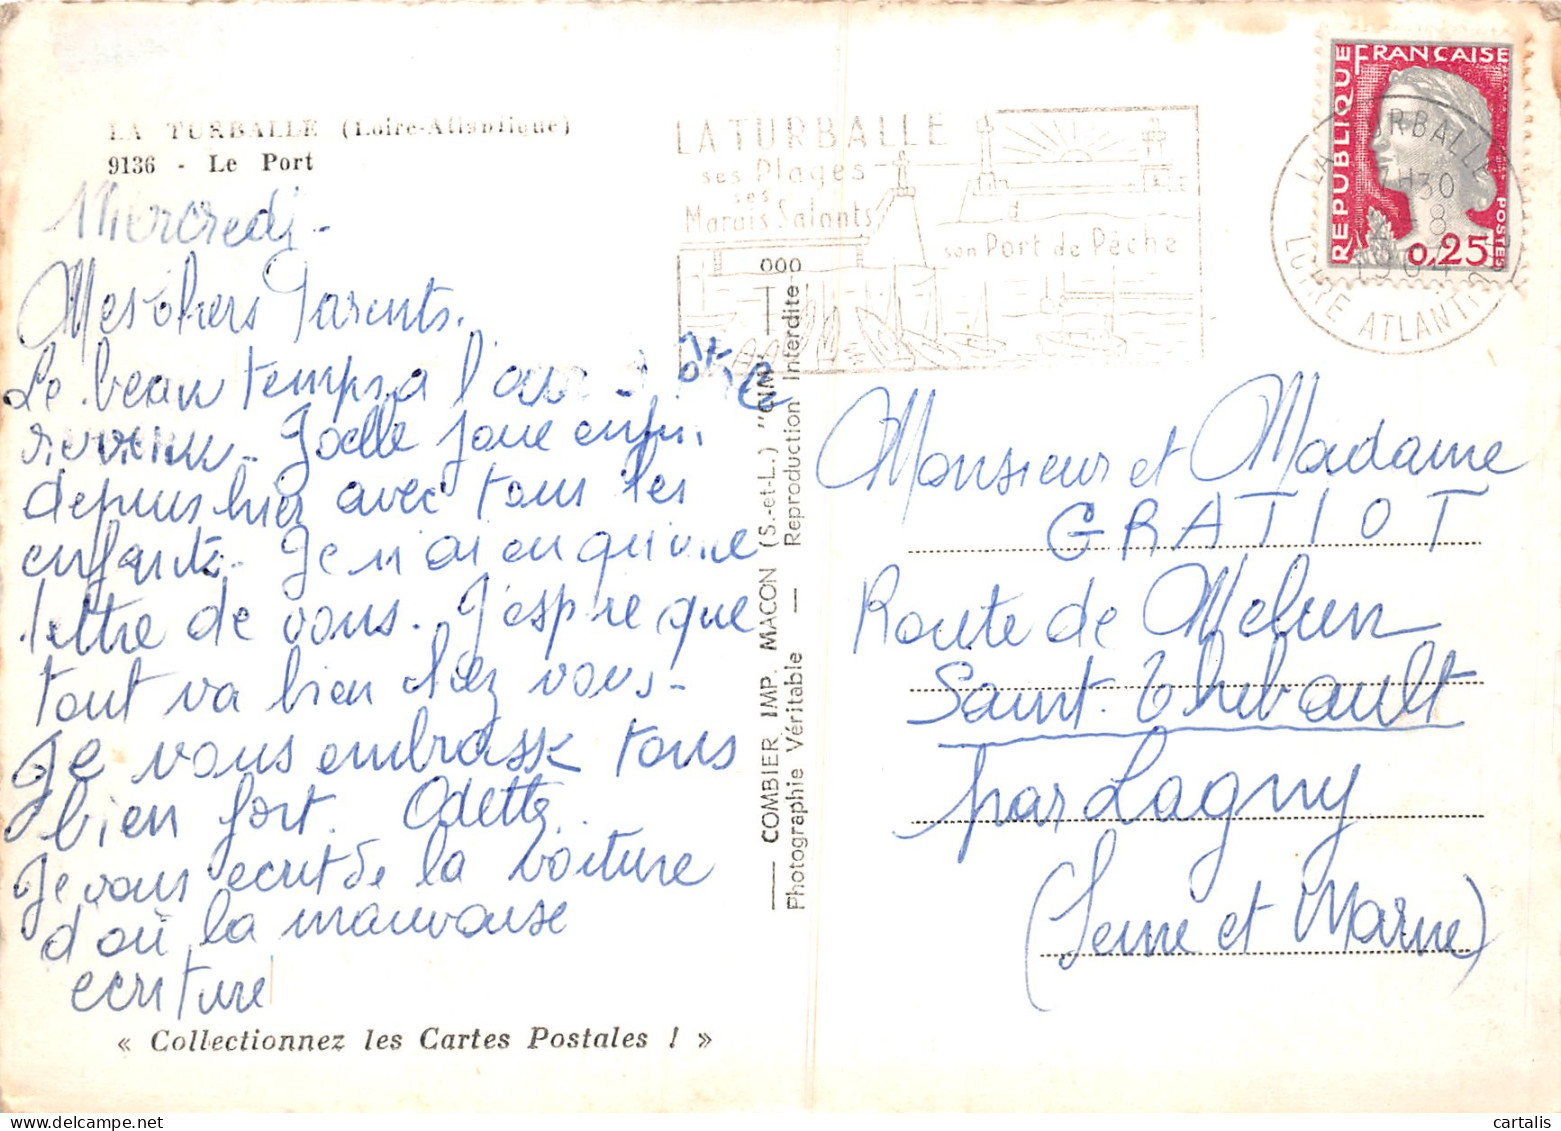 LA TURBALLE (Loire-Atlantique)
9136 - Le Port
Mercredi -
Mes chers Parents.
Le beau temps a l'air
revenu - Joelle joue enfin
depuis hier avec tous les
enfants. Je n'ai eu qu'une
lettre de vous. J'espère que
tout va bien chez vous -
Je vous embrasse tous
bien fort. Odette.
Je vous ecrit de la voiture
d'où la mauvaise
ecriture
« Collectionnez les Cartes Postales ! »
COMBIER IMP. MACON (S.-et-L.) "CIM"
Photographie Véritable — Reproduction Interdite
LA TURBALLE
ses Plages
ses
Marais Salants
son Port de Pêche
REPUBLIQUE FRANÇAISE
POSTES
0,25
LA TURBALLE
7H30
-8
1964
LOIRE ATLANTIQUE
Monsieur et Madame
GRATIOT
Route de Melun
Saint. Thibault
par Lagny
(Seine et Marne)
cartalis